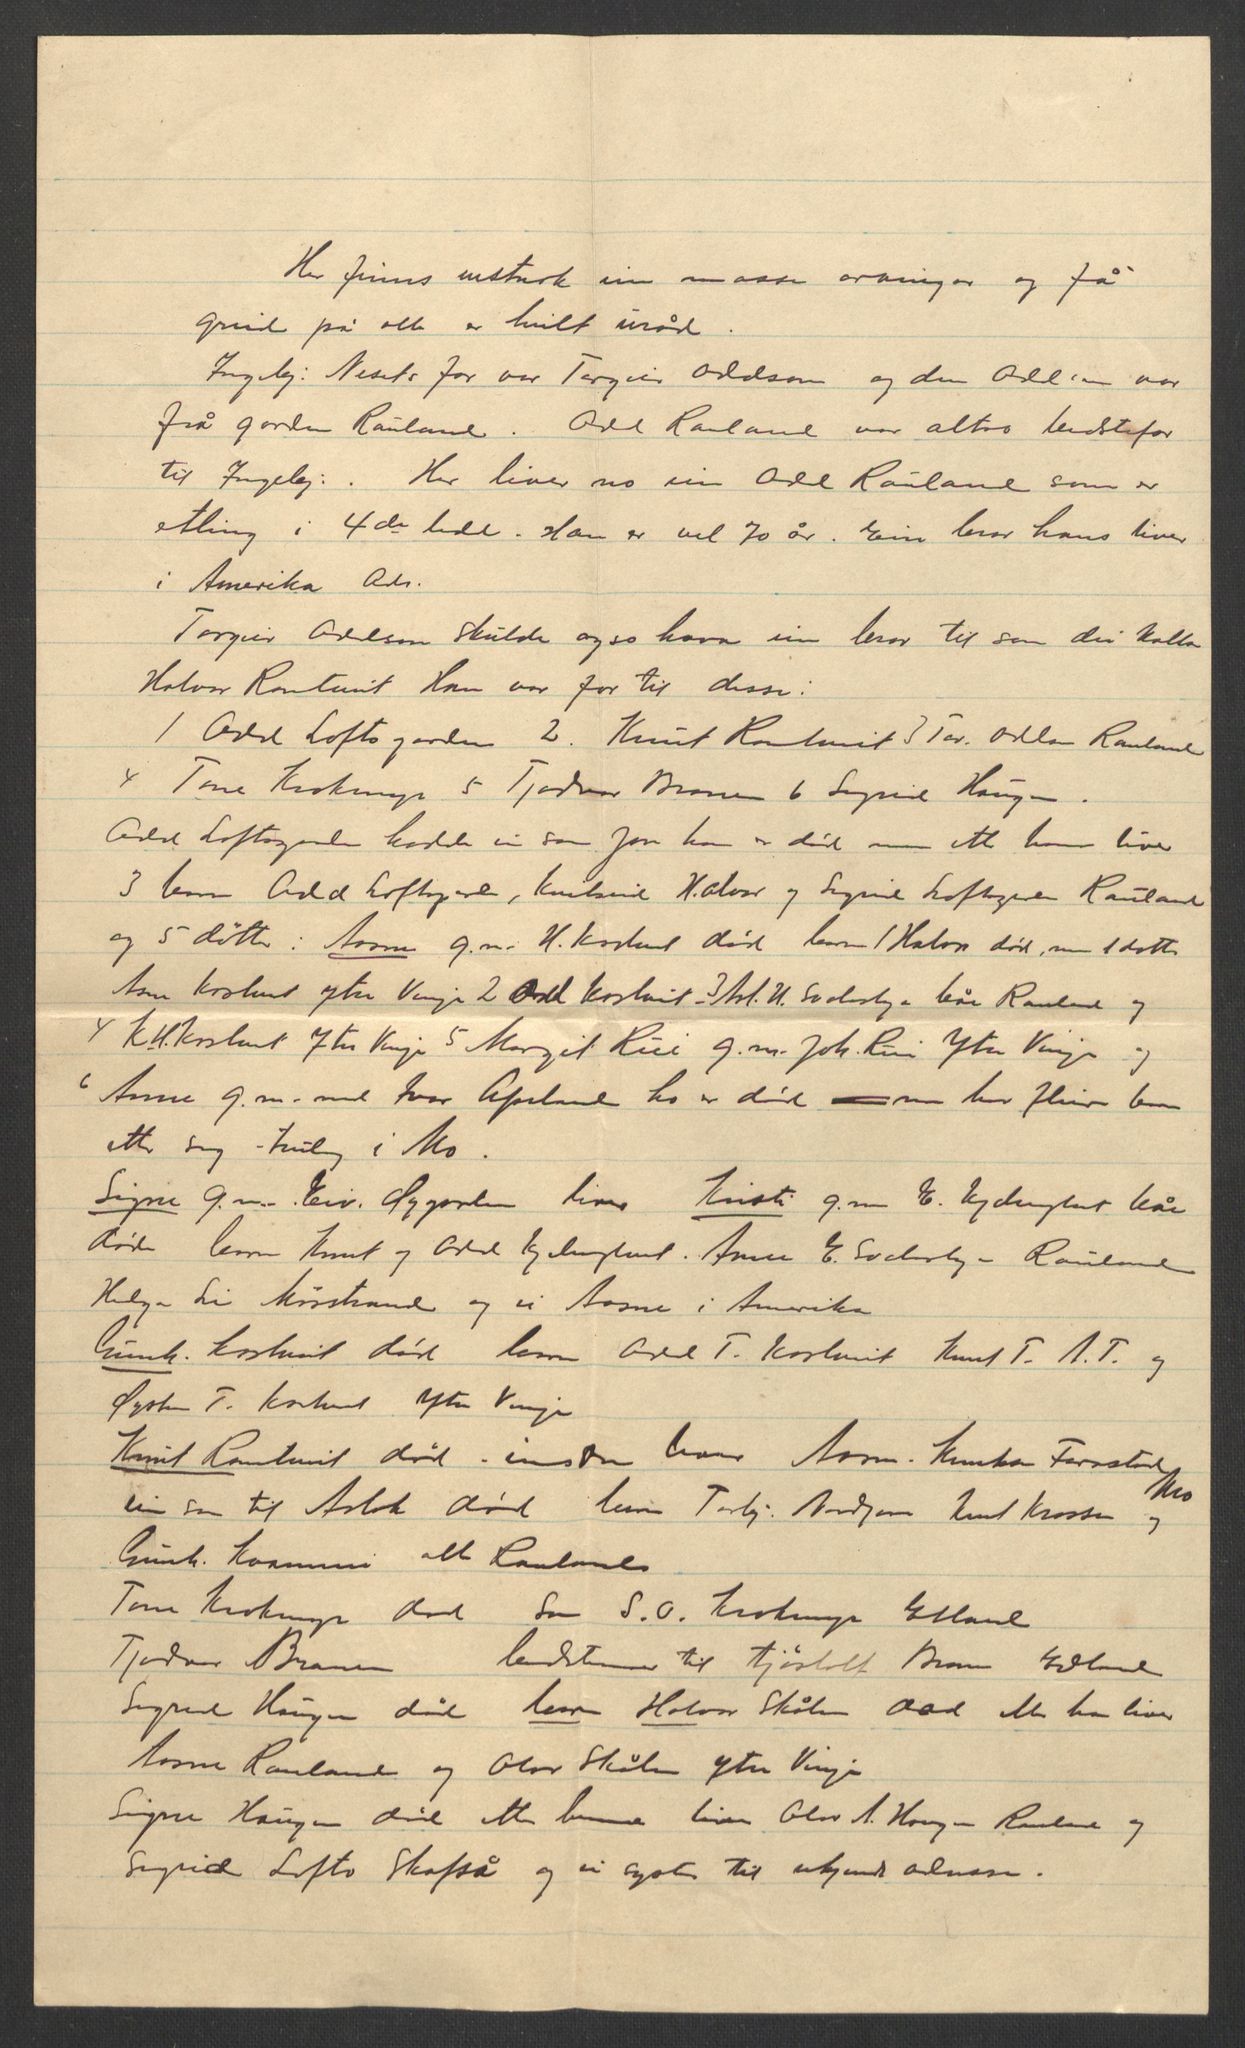 Her finns ustærk ein masse arvingar og få
greid på alle er heilt uråd.
Ingebj: Nesets far var Torgeir Oddson og den Odd'en var
frå garden Rauland. Odd Rauland var altso bestefar
til Ingebj: . Her liver no ein Odd Rauland som er
etling i 4de ledd. Han er vel 70 år. Ein bror hans liver
i Amerika Ads.
Torgeir Oddson skulde ogso hava ein bror til som dei kalla
Halvor Rantveit Han var far til desse:
1 Odd Loftsgarden 2. Knut Rantveit 3 Tor. Rauland
4 Tone Krokmyr 5 Tjodvor Branen 6 Sigrid Haugen.
Odd Loftsgarden hadde ei son Jon han er død men ett han liver
3 born Odd Loftsgard, Halvor og Sigrid Loftsgarden Rauland
og 5 døttr: Aasne g.m. H. Kostveit død born 1 Halvor død, men 1 dotter
Asne Kostveit ytre Vinje 2 Odd Kostveit 3 Asl. H. båe Rauland og
4 K.H. Kostveit Ytre Vinje 5 Margit Rui g.m. Joh. Rui Ytre Vinje og
6 Anne g.m. med Ivar Apeland ho er død men har fleire born
etter seg truleg i Mo.
Signe g.m. Eiv. Øygarden liver Kristi g.m. E. båe
døde born Knut og Odd Anne E. Rauland
Helga Li Møsstrand og ei Aasne i Amerika
Gunh. Kostveit død born Odd T. Kostveit Knut T. A.T. og
Øystein T. Kostveit Ytre Vinje
Knut Rantveit død born Aasne Mo
ein son til Aslak død born Torbj. Knut Krossen og
Gunh. alle Rauland
Tone Krokmyr død son S.O. Krokmyr Edland
Tjodvor Branen til Tjøstolf Braen Edland
Sigrid Haugen død born Halvor Skålen død etter han liver
Aasne Rauland og Olav Skålen ytre Vinje
Signe Haugen død etter henne liver Olav A. Haugen Rauland og
Sigrid Lofto Skafså og ei syster til ukjend adresse.